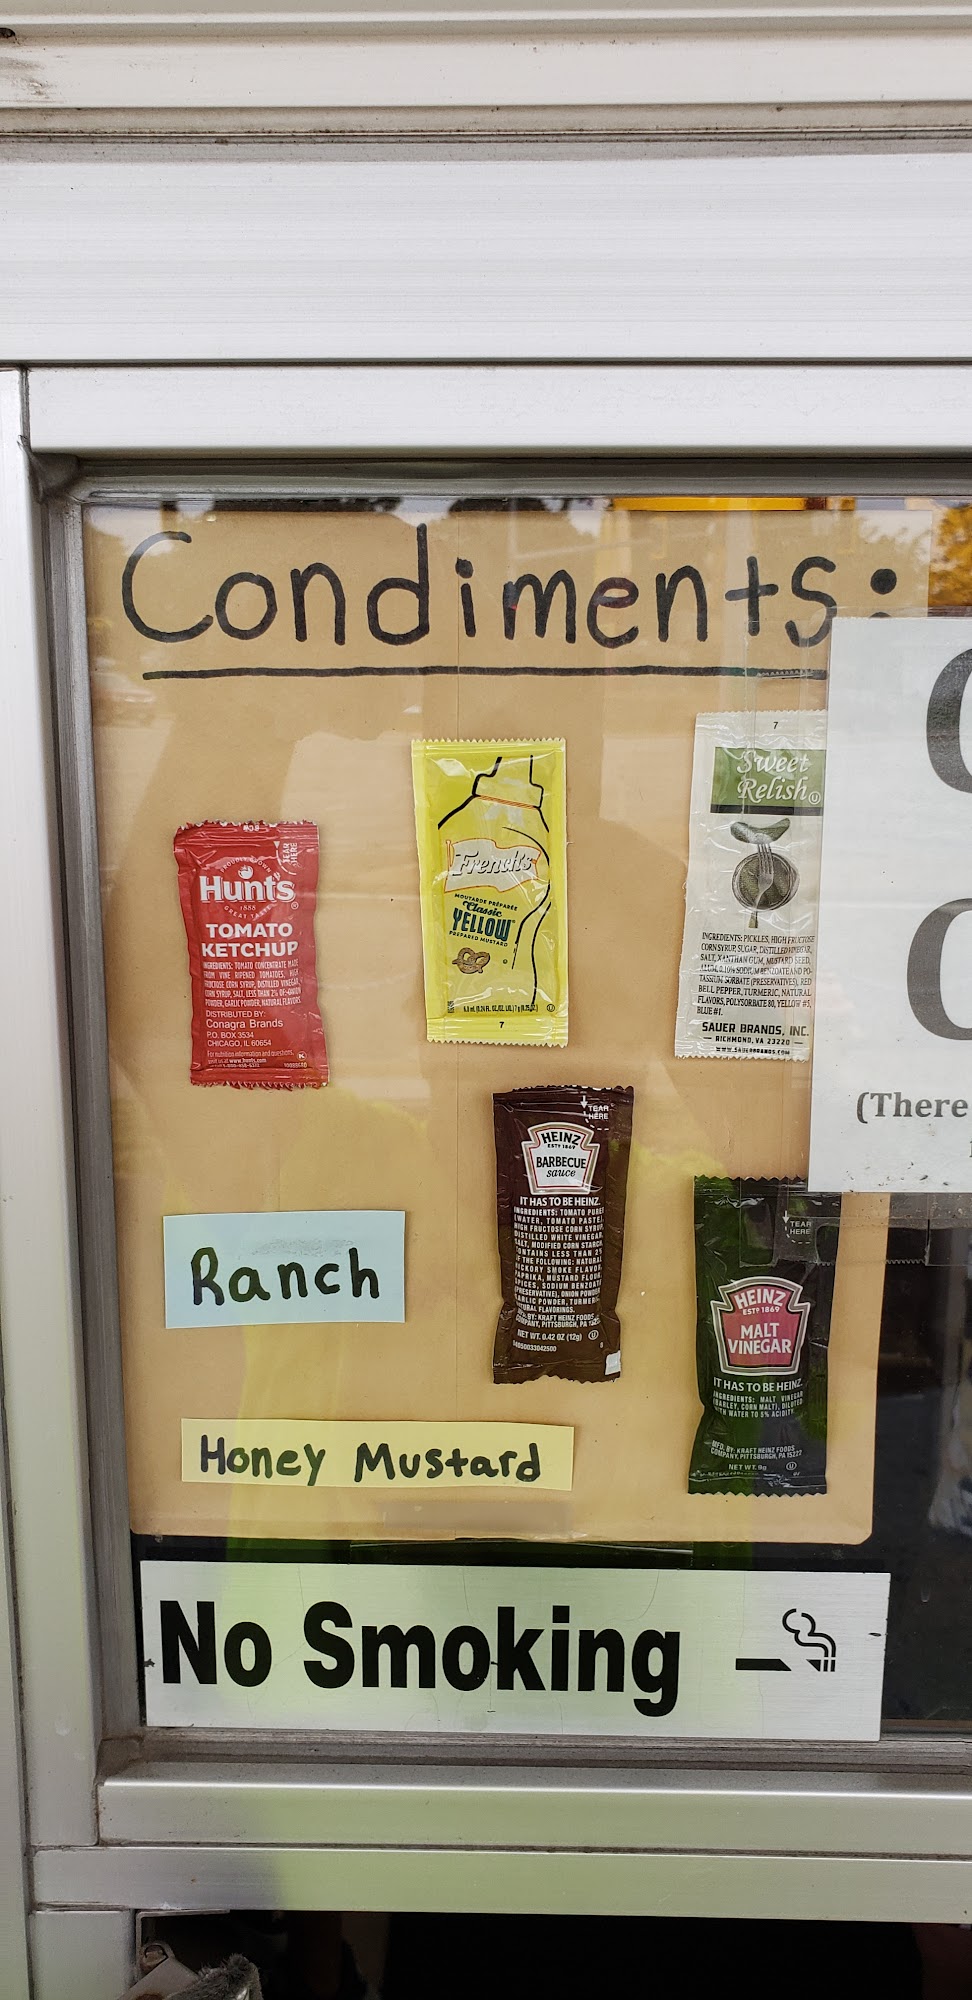 Condiments:
808
TEAR
HERE
Hunt's
1888
GREAT TASTE
TOMATO
KETCHUP
INGREDIENTS: TOMATO CONCENTRATE MADE
FROM VINE RIPENED TOMATOES, HIGH
FRUCTOSE CORN SYRUP, DISTILLED VINEGAR,
CORN SYRUP, SALT, LESS THAN 2% OF: ONION
POWDER, GARLIC POWDER, NATURAL FLAVORS.
DISTRIBUTED BY:
Conagra Brands
P.O. BOX 3534
CHICAGO, IL 60654
For nutrition information and questions,
visit us at www.hunts.com
French's
MOUTARDE PRÉPARÉE
Classic
YELLOW
PREPARED MUSTARD
7
7
Sweet
Relish
INGREDIENTS: PICKLES, HIGH FRUCTOSE
CORN SYRUP, SUGAR, DISTILLED VINEGAR,
SALT, XANTHAN GUM, MUSTARD SEED,
ALUM, 0.10% SODIUM BENZOATE AND PO-
TASSIUM SORBATE (PRESERVATIVES), RED
BELL PEPPER, TURMERIC, NATURAL
FLAVORS, POLYSORBATE 80, YELLOW #5,
BLUE #1.
SAUER BRANDS, INC.
RICHMOND, VA 23220
WWW.SAUERBRANDS.COM
(There
TEAR
HERE
HEINZ
ESTD 1869
BARBECUE
sauce
IT HAS TO BE HEINZ.
INGREDIENTS: TOMATO PUREE
(WATER, TOMATO PASTE),
HIGH FRUCTOSE CORN SYRUP,
DISTILLED WHITE VINEGAR,
SALT, MODIFIED CORN STARCH,
CONTAINS LESS THAN 2%
OF THE FOLLOWING: NATURAL
HICKORY SMOKE FLAVOR,
PAPRIKA, MUSTARD FLOUR,
SPICES, SODIUM BENZOATE
(PRESERVATIVE), ONION POWDER,
GARLIC POWDER, TURMERIC,
NATURAL FLAVORINGS.
MFD. BY: KRAFT HEINZ FOODS
COMPANY, PITTSBURGH, PA
NET WT. 0.42 OZ (12g)
Ranch
TEAR
HERE
HEINZ
ESTD 1869
MALT
VINEGAR
IT HAS TO BE HEINZ.
INGREDIENTS: MALT VINEGAR
(BARLEY, CORN MALT), DILUTED
WITH WATER TO 5% ACIDITY.
MFD. BY: KRAFT HEINZ FOODS
COMPANY, PITTSBURGH, PA 15222
NET WT. 9g
Honey Mustard
No Smoking